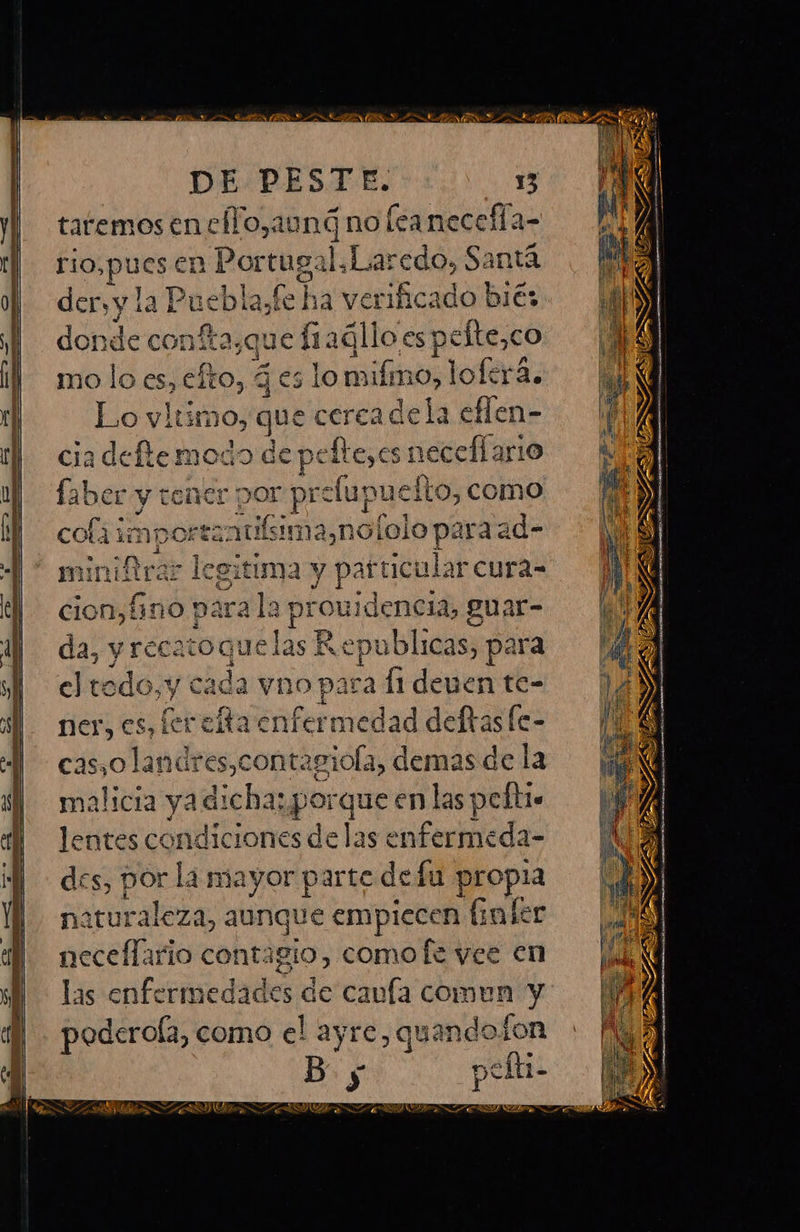 DE PESTE. 13
taremos en eſſo,aunq̃ no ſea neceſſa-
rio,pues en Portugal,Laredo, Santã
der,y la Puebla,ſe ha verificado bié:
donde conſta,que ſi aq̃llo es peſte,co
mo lo es, eſto, q̃ es lo miſmo, lo ſerá.
Lo vltimo, que cerca de la eſſen-
cia deſte modo de peſte,es neceſſario
ſaber y tener por preſupueſto, como
coſa importantiſsima,no ſolo para ad-
miniſtrar legitima y particular cura-
cion,ſino para la prouidencia, guar-
da, y recato que las Republicas, para
el todo,y cada vno para ſi deuen te-
ner, es, ſer eſta enfermedad deſtas ſe-
cas,o landres,contagioſa, demas de la
malicia ya dicha: porque en las peſti-
lentes condiciones de las enfermeda-
des, por la mayor parte de ſu propia
naturaleza, aunque empiecen ſin ſer
neceſſario contagio, como ſe vee en
las enfermedades de cauſa comun y
poderoſa, como el ayre, quando ſon
B 5 peſti-